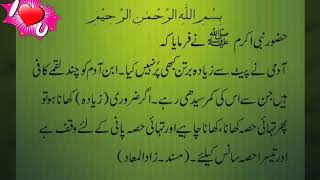 بسم اللہ الرحمٰن الرحیم
حضور نبی اکرم ﷺ نے فرمایا کہ
آدمی نے پیٹ سے زیادہ برتن کبھی پُر نہیں کیا۔ ابن آدم کو چند لقمے کافی
ہیں جن سے اس کی کمر سیدھی رہے۔ اگر ضروری (زیادہ) کھانا ہو تو
پھر تہائی حصہ کھانا، کھانا چاہیے اور تہائی حصہ پانی کے لئے وقف ہے
اور تیسرا حصہ سانس کیلئے۔ (مسند۔ زاد المعاد)